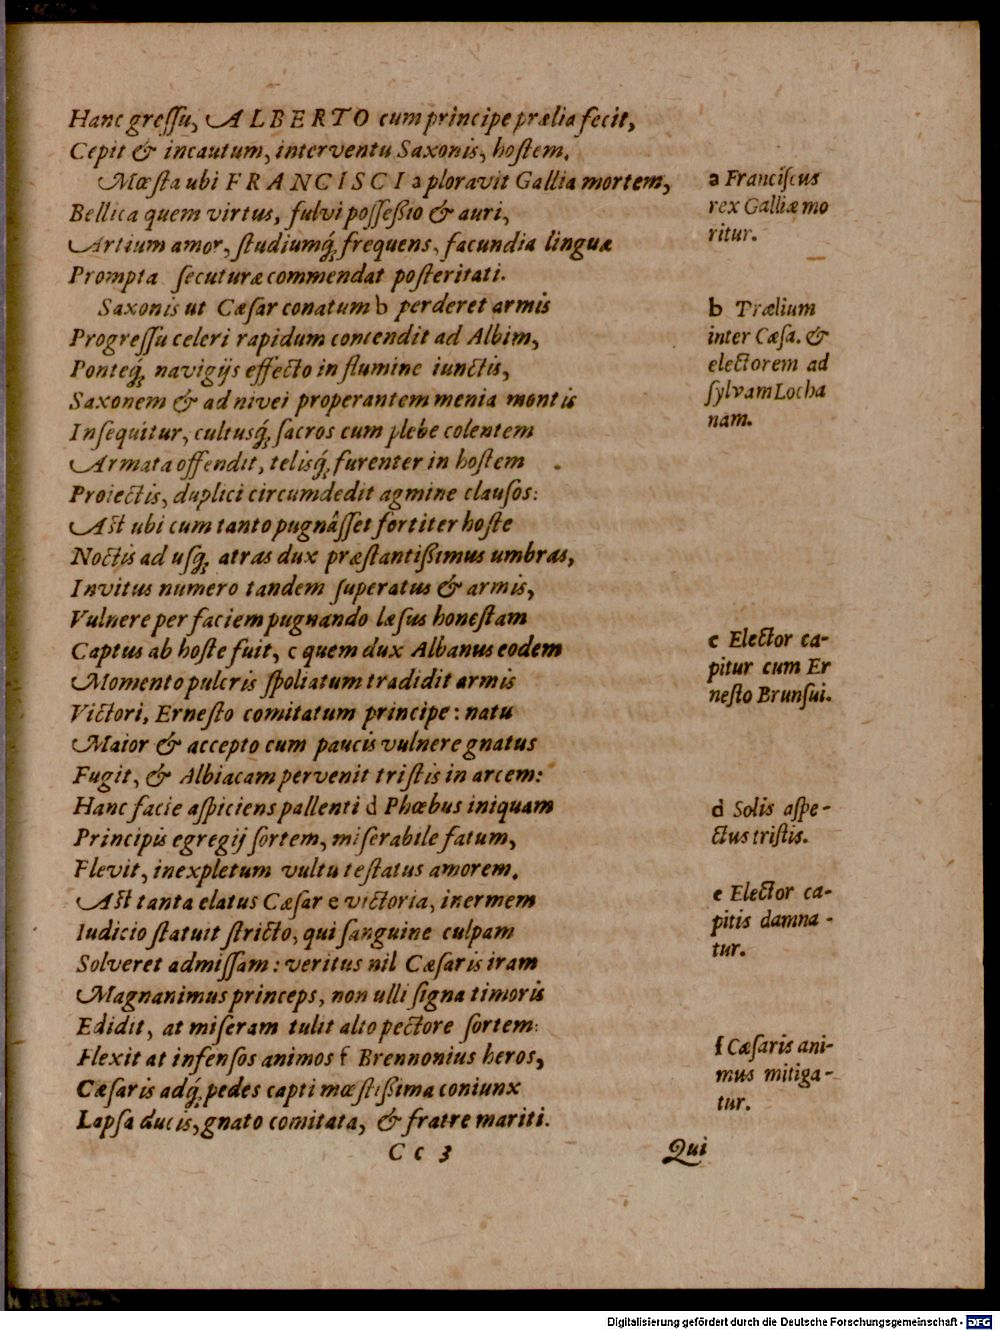 Hanc greſſu, ALBERTO cum principe prælia fecit,
Cepit & incautum, interventu Saxonis, hoſtem.
Mœſta ubi FRANCISCI a ploravit Gallia mortem,
Bellica quem virtus, fulvi poſſeßio & auri,
Artium amor, ſtudiumq́; frequens, facundia linguæ
Prompta ſecuturæ commendat poſteritati.
Saxonis ut Cæſar conatum b perderet armis
Progreſſu celeri rapidum contendit ad Albim,
Ponteq́; navigijs effecto in flumine iunctis,
Saxonem & ad nivei properantem menia montis
Inſequitur, cultusq́; ſacros cum plebe colentem
Armata offendit, telisq́; furenter in hoſtem
Proiectis, duplici circumdedit agmine clauſos:
Aſt ubi cum tanto pugnâſſet fortiter hoſte
Noctis ad uſq; atras dux præſtantißimus umbras,
Invitus numero tandem ſuperatus & armis,
Vulnere per faciem pugnando læſus honeſtam
Captus ab hoſte fuit, c quem dux Albanus eodem
Momento pulcris ſpoliatum tradidit armis
Victori, Erneſto comitatum principe: natu
Maior & accepto cum paucis vulnere gnatus
Fugit, & Albiacam pervenit triſtis in arcem:
Hanc facie aſpiciens pallenti d Phœbus iniquam
Principis egregij ſortem, miſerabile fatum,
Flevit, inexpletum vultu teſtatus amorem.
Aſt tanta elatus Cæſar e victoria, inermem
Iudicio ſtatuit ſtricto, qui ſanguine culpam
Solveret admiſſam: veritus nil Cæſaris iram
Magnanimus princeps, non ulli ſigna timoris
Edidit, at miſeram tulit alto pectore ſortem:
Flexit at infenſos animos f Brennonius heros,
Cæſaris adq́; pedes capti mœſtißima coniunx
Lapſa ducis, gnato comitata, & fratre mariti.
Cc 3
Qui
a Franciſcus
rex Galliæ mo
ritur.
b Prælium
inter Cæſa. &
electorem ad
ſylvam Locha
nam.
c Elector ca-
pitur cum Er
neſto Brunſui.
d Solis aſpe-
ctus triſtis.
e Elector ca-
pitis damna-
tur.
f Cæſaris ani-
mus mitiga-
tur.
Digitalisierung gefördert durch die Deutsche Forschungsgemeinschaft - DFG